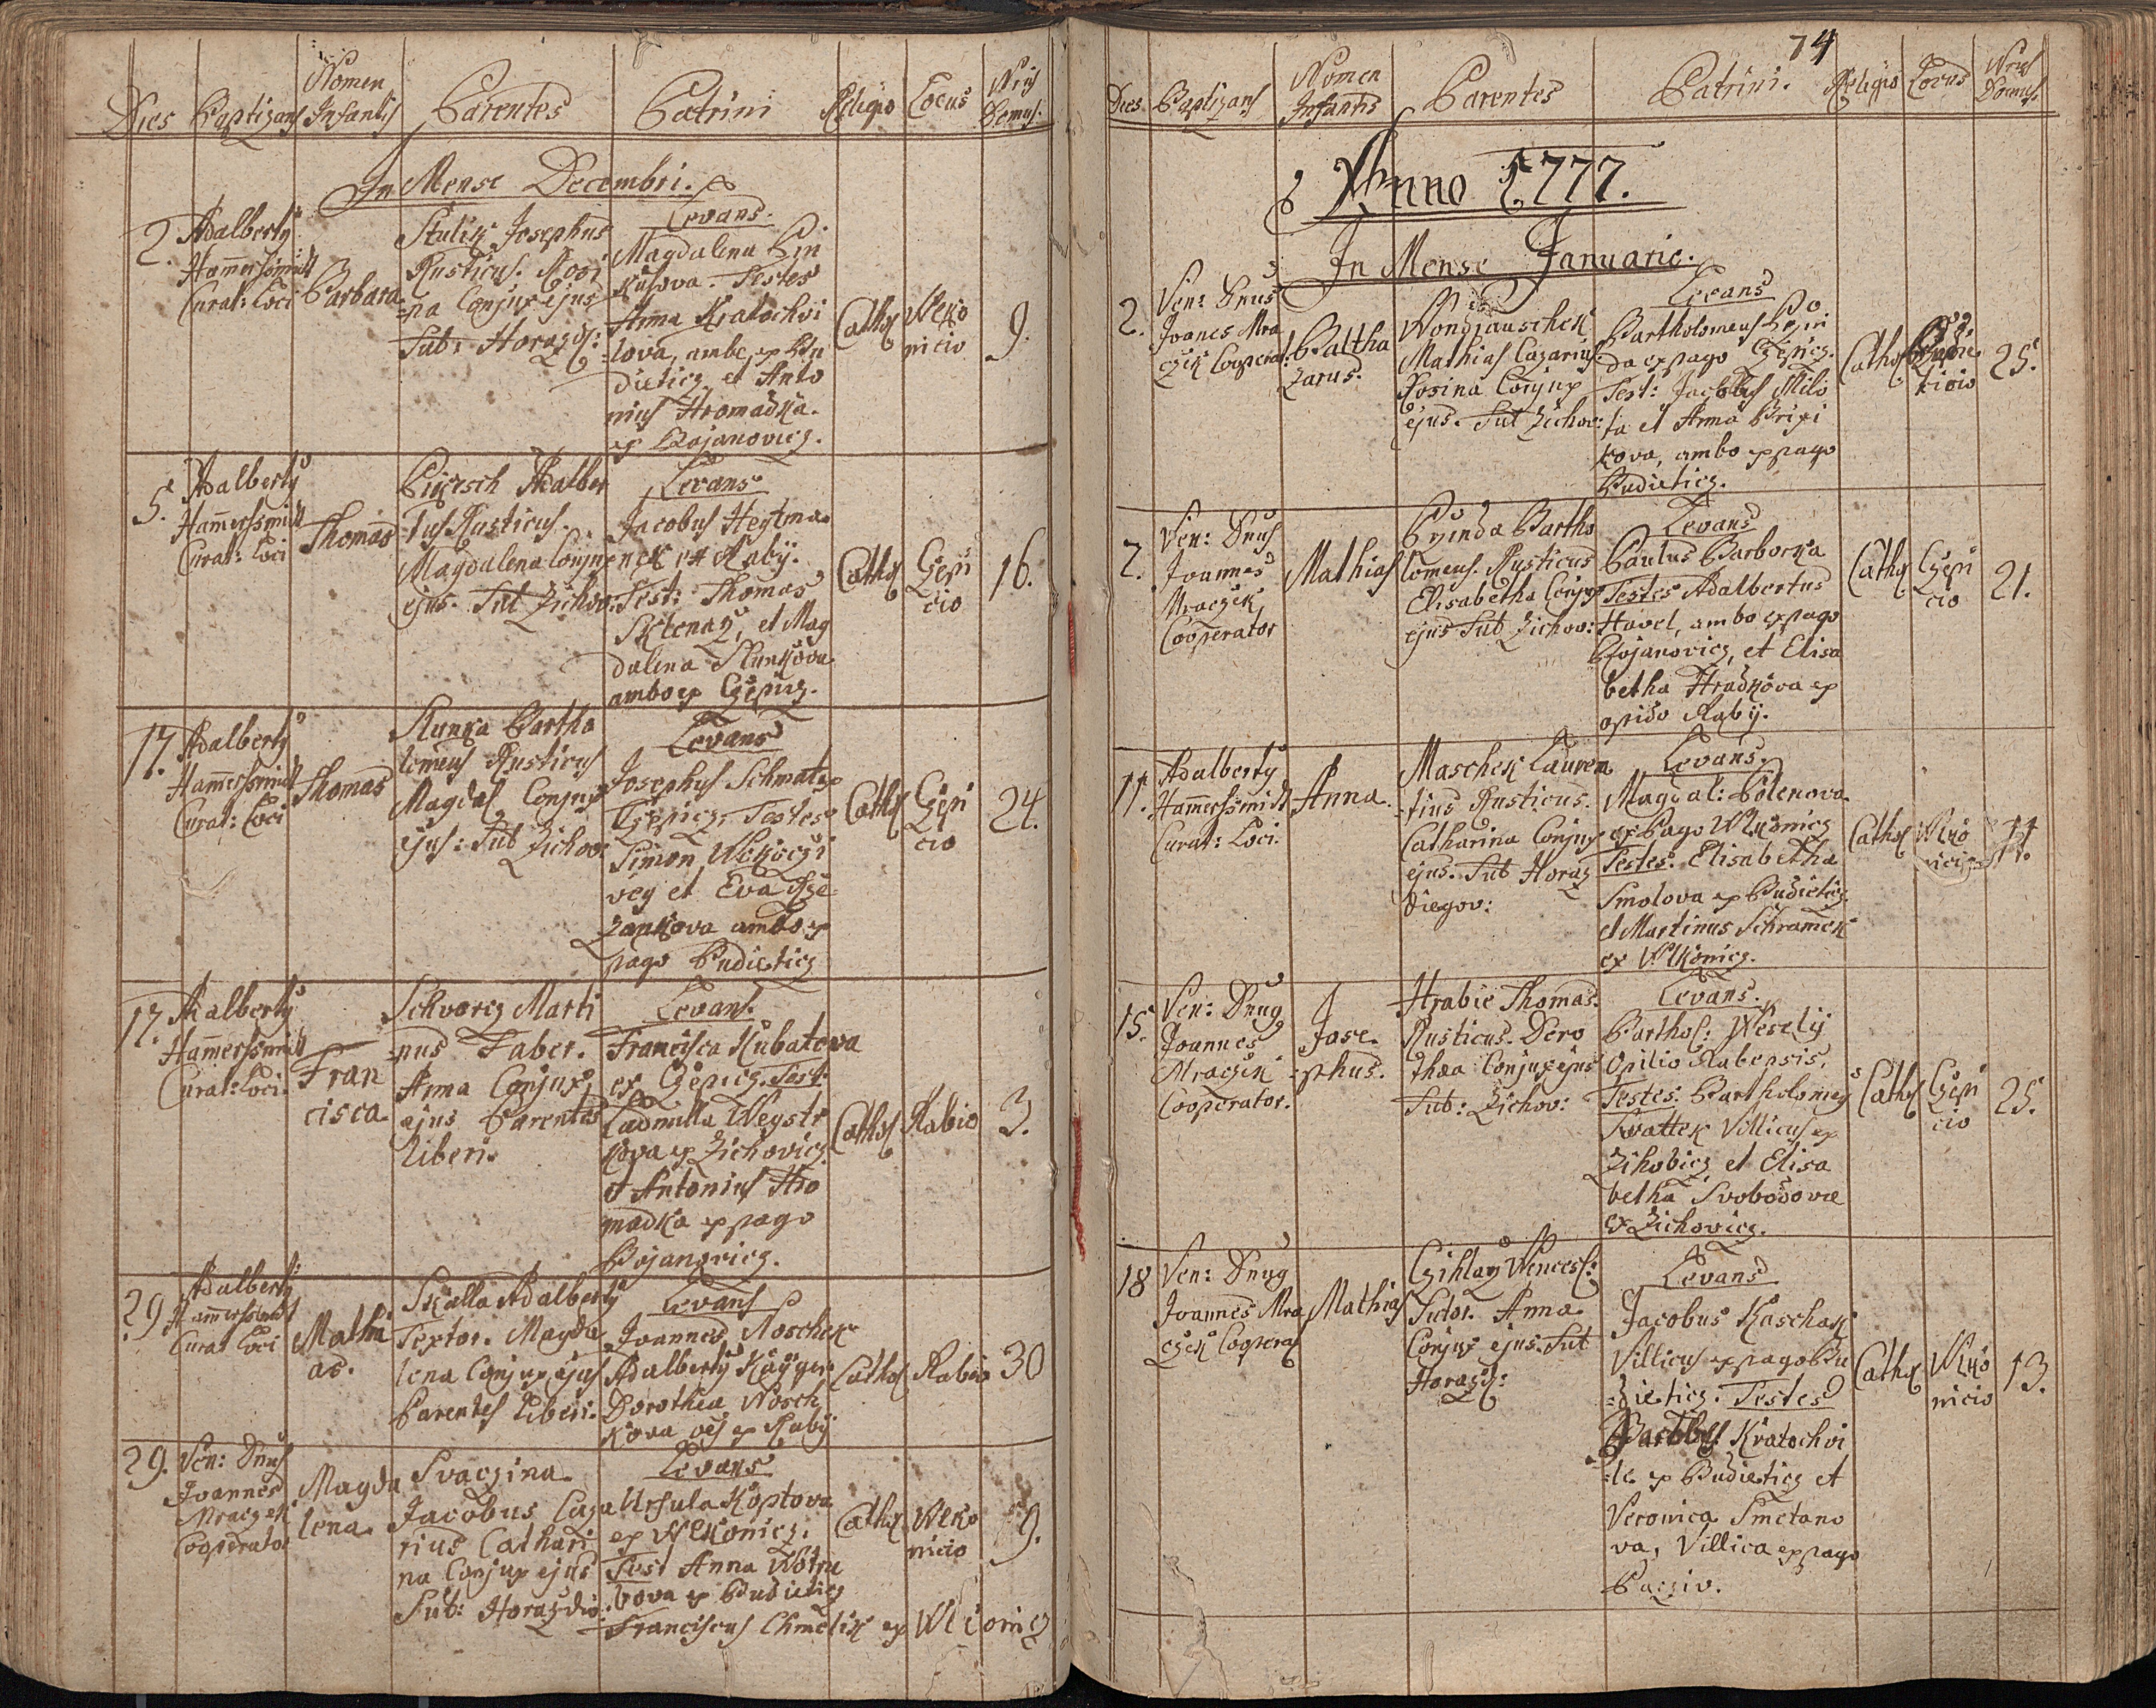 Dies Baptizans Nomen Infantis Parentes Patrini Religio Locus Nrus Domus
In Mense Decembri.
2. Adalbertus Hamerssmidt Curat: Loci
Barbara
Stulik Josephus
Rusticus. Rosi
na Conjux ejus
Sub: Horazd:
Levans.
Magdalena Pin
kasova. Testes
Anna Kratochvi
lova, ambe ex Bu
dieticz et Anto
nius Hromadka
ex Bojanovicz.
Cathol
Wlko
nicio
9.
5. Adalbertus
Hamerssmidt
Curat: Loci
Thomas
Adalber
tus Rusticus.
Magdalena Conjux
ejus. Sub Zichov:
Levans
Jacobus Heytma
nek ex Rabij.
Test: Thomas
et Mag
dalena Slunkova
ambo ex Czepicz.
Cathol
Czepi
cio
16.
17. Adalbertus
Hamerssmidt
Curat: Loci
Thomas
Slunka Bartho
lomeus Rusticus
Magdal Conjux
ejus: Sub Zichov:
Levans
Josephus Schmat ex
Czepicz. Testes
Simon
et Eva
zankova ambo ex
pago Budieticz
Cathol
Czepi
cio
24.
17. Adalbertus
Hamerssmidt
Curat: Loci.
Fran
cisca
Schvarcz Marti
nus Faber.
Anna Conjux
ejus Parentes
liberi.
Levans.
Francisca Kubatova
ex Czepicz. Test:
Ludmilla Weystr
kova ex Zichovicz
et Antonius Hro
madka ex pago
Bojanovicz.
Cathol
Rabio
3.
29. Adalbertus
Hamerssmidt
Curat Loci
Mathi
as.
Skalla Adalbertus
Textor. Magda
lena Conjux ejus
Parentes liberi.
Levans
Joannes Noschek
Adalbertus Kayger
Dorothea Nosch
kova oes ex Rabij
Cathol
Rabio
30
29. Ven: Dnus
Joannes
Mraczek
Cooperator
Magda
lena.
Svaczina
Jacobus Caza
rius Cathari
na Conjux ejus
Sub: Horazdio:
Levans
Ursula Koptova
ex Wlkonicz.
Test Anna
bova ex Budieticz
Franciscus Chmelik ex Wlkonicz
Cathol
Wlko
nicio
9.
74
Dies. Baptizans Nomen Infantis Parentes Patrini. Religio Locus Nrus Domus.
Anno 1777.
In Mense Januario.
2. Ven: Dnus
Joanes Mra
czek Cooperat:
Baltha
zarus.
Wondrauschek
Mathias Cazarius
Rosina Conjux
ejus. Sub Zichov:
Levans
Bartholomeus Pejn
da ex pago Czepicz.
Test: Jacobus Milo
ta et Anna Brixi
kova, ambo ex pago
Budieticz.
Cathol
Budie
ticio
25.
2. Ven: Dnus
Joannes
Mraczek
Cooperator
Mathias
Bartho
lomeus. Rusticus
Elisabetha Conjux
ejus Sub Zichov:
Levans
Paulus Barborka
Testes Adalbertus
Havel, ambo ex pago
Bojanovicz, et Elisa
betha Hradkova ex
opido Rabij.
Cathol
Czepi
cio
21.
11. Adalbertus
Hamerssmidt
Curat: Loci.
Anna
Maschek Lauren
tius Rusticus.
Catharina Conjux
ejus. Sub Horaz
diegov:
Levans.
Magdal: Polenova
ex Pago Wlkonicz
Testes: Elisabetha
Smolova ex Budieticz
et Martinus Schramek
ex Wlkonicz.
Cathol
Wlko
nicio
11.
15. Ven: Dnus
Joannes
Mraczek
Cooperator.
Jose
phus.
Hrabie Thomas.
Rusticus. Doro
thæa Conjux ejus
Sub: Zichov:
Levans.
Barthol: Weselý
Opilio Rabensis.
Testes: Bartholomeus
Swattek Villicus ex
Zihobicz et Elisa
betha Svobodova
ex Zichovicz.
Cathol
Czepi
cio
25.
18 Ven: Dnus
Joannes Mra
czek Cooperat
Mathias
Czihlarz Wencesl:
Sutor. Anna
Conjux ejus. Sub
Horazd:
Levans
Jacobus Kaschak
Villicus ex pago Bu
dieticz: Testes
Kratochvi
le ex Budieticz et
Veronica Smetano
va, Villica ex pago
Pacziv.
Cathol
Wlko
nicio
13.